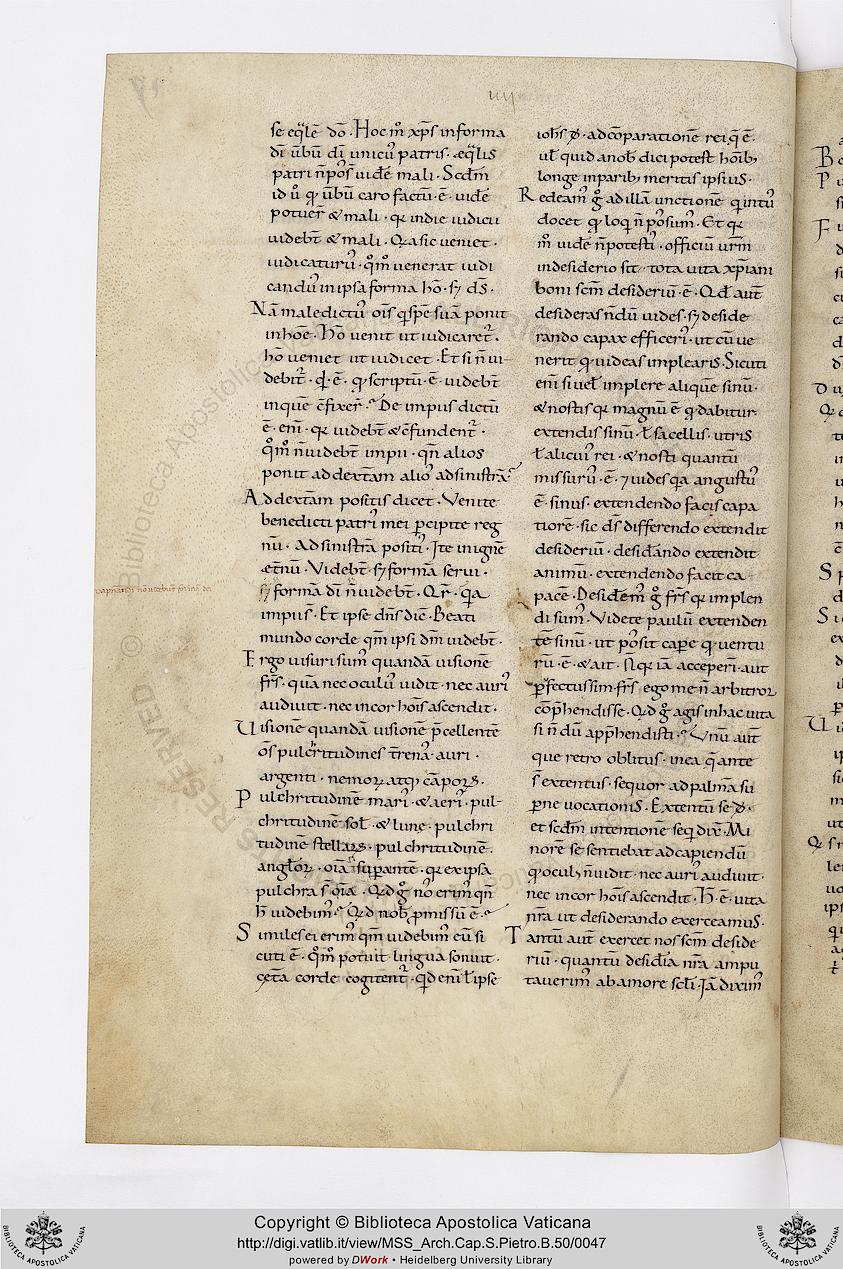 se eqͣlē dō. Hoc m̄ xp̄s informa
di ūbū di unicus patris. eqͣlis
patri n̄ pos̄ uidē mali. Scdm
id ů qͦ ūbū caro factū. ē. uidē
potuer & mali. qr in die iudicii
uidebt & mali. Qr sic ueniet.
iudicaturus. qͦm̊ uenerat iudi
candus in ipsa forma hō. sꝫ ds̄.
Nā maledictus ois q spē suā ponit
in hoē. Hō uenit ut iudicaret.
hō ueniet ut iudicet. Et si n̄ ui
debit. qd ē. qͦ scriptū. ē. uidebt
in que c̄fixer. De impiis dictū
ē. eni. qr uidebt & c̄fundent.
qͦm̊ n̄ uidebt impii. qn̄ alios
ponit ad dextam alios ad sinistrā
Ad dextam positis dicet. Venite
benedicti patris mei p̄cipite reg
nū. Ad sinistrā positis. Ite in ignē
et̄nū. Videbt. sꝫ formā serui.
sꝫ formā di n̄ uidebt. Qr. qa
impiis. Et ipse dn̄s diē. Beati
mundo corde qm̄ ipsi dm̄ uidebt.
Ergo uisuri sumus quandā uisionē
frs̄. quā nec oculus uidit. nec auris
audiuit. nec in cor hois ascendit.
Uisionē quandā uisionē p̄cellentē
os̄ pulcritudines t̄renas auri.
argenti. nemorꝫ atqꝫ cāporꝫ.
Pulchritudinē maris. & aeris. pul-
chritudinē sol. & lune. pulchri
tudinē stellarꝫ. pulchritudinē.
anglorꝫ. oīa supantē. qr ex ipsa
pulchra s̄ oīa. Qd gͦ nos erimus qn̄
h̄ uidebimus. Qd nobis p̄missū ē.
Similes ei erimus qm uidebimus eū si
cuti ē. Qͦm̊ potuit lingua sonuit.
cet̄a corde cogitent. Qd eni l ipse
iohs̄ ø. ad cōparationē rei q ē.
ul quid a nob dici potest hoībꝫ
longe inparibꝫ meritis ipsius.
Redeamus gͦ ad illā unctionē q intus
docet qͦ loqi n̄ possumus. Et qr
m̄ uidē n̄ potestis. officiū urm
in desiderio sit. tota uita xpiani
boni scm desideriū. ē. Qd aut
desideras n̄dū uides. sꝫ deside
rando capax efficeris. ut cū ue
nerit qͦ uideas implearis. Sicuti
eni si uelis implere aliquē sinū.
& nostis qr magnū ē qͦ dabitur
extendis sinū. l sacellis. utris
l alicuius rei. & nosti quantū
missurus. ē. ⁊ uides qa angustus
ē. sinus. extendendo facis capa
tiorē. sic ds̄ differendo extendit
desideriū. desidando extendit
animū. extendendo facit ca
pacē. Desidemus gͦ frs̄ qr implen
di sumus. Videte paulū extenden
tē sinū. ut possit cape qͦ uentu
rū. ē. & ait. N̄ qr iā acceperi. aut
pfectus sim. frs̄ ego me n̄ arbitror
cōphendisse. Qd gͦ agis in hac uita
si n̄dū apphendisti. Unū aut
que retro oblitus. in ea q ante
s̄ extentus. sequor ad palmā su
pne uocationis. Extentū se ø.
et scdm intentionē seqi dix. Mi
norē se sentiebat ad capiendū
qͦ oculus n̄ uidit. nec auris audiuit.
nec in cor hois ascendit. H̄. ē. uita
nr̄a ut desiderando exerceamus.
Tantū aut exercet nos scm deside
riū. quantū desidia nr̄a ampu
tauerimus ab amore scli. Iā diximus
Copyright © Biblioteca Apostolica Vaticana
http://digi.vatlib.it/view/MSS_Arch.Cap.S.Pietro.B.50/0047
powered by DWork • Heidelberg University Library